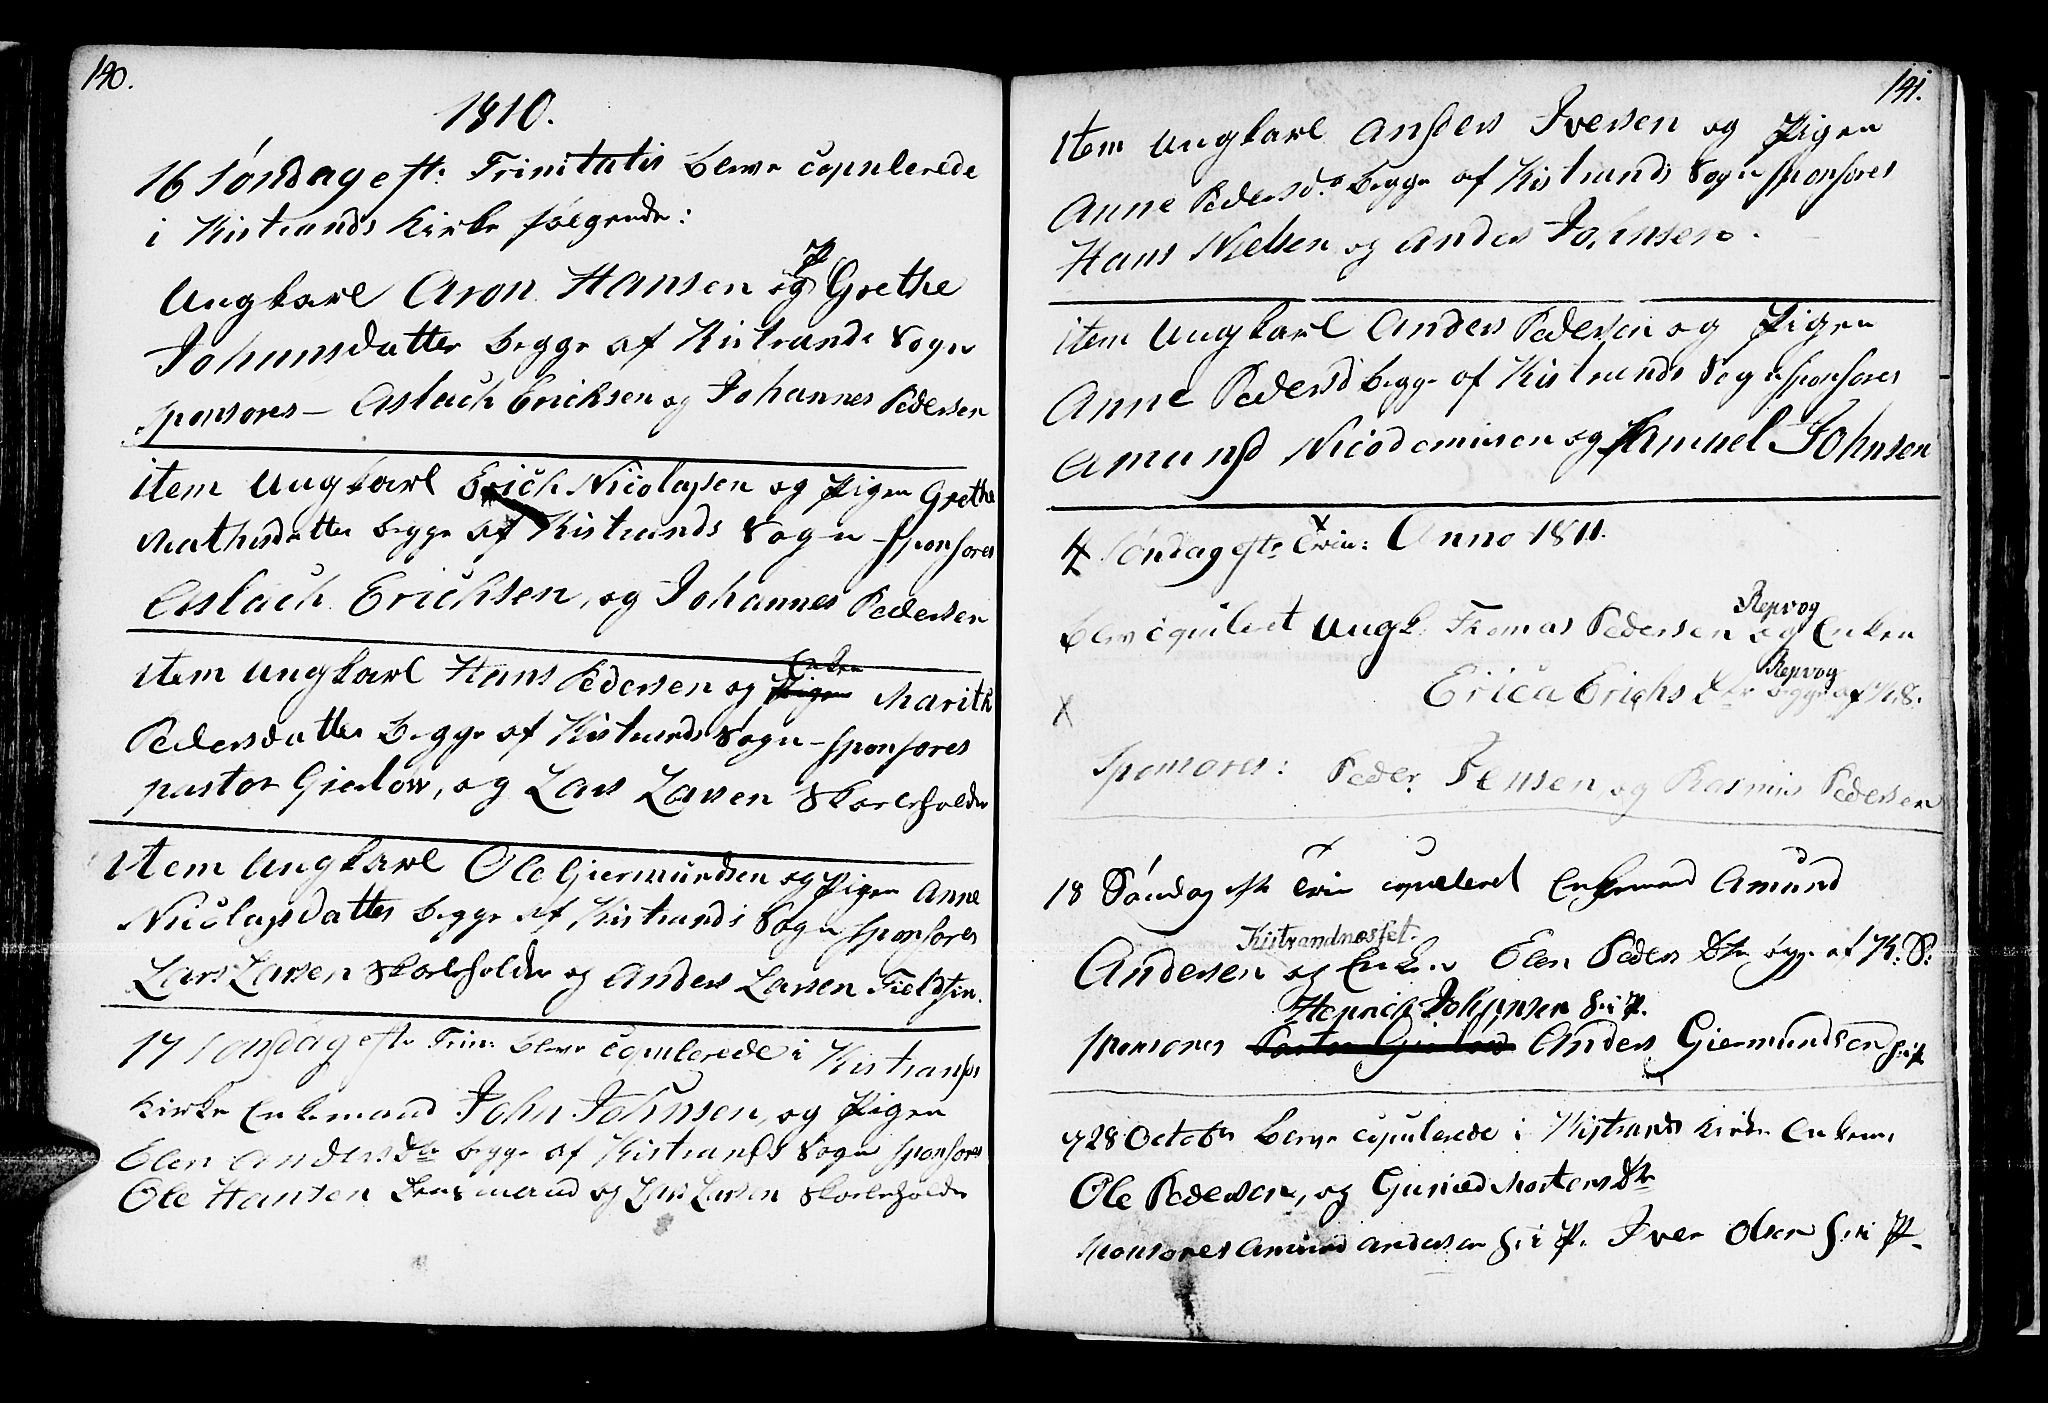 140.
1810.
16 Søndag eft: Trinitatis bleve copulerede
i Kistrands Kirke følgende:
Ungkarl Aron Hansen og P Grethe
Johannsdatter begge af Kistrands Sogn
sponsores – Aslach Ericksen og Johannes Pedersen
item Ungkarl Erich Nicolajsen og Pigen Grethe
Mathisdatter begge af Kistrands Sogn – sponsores
Aslach Erichsen, og Johannes Pedersen
item Ungkarl Hans Pedersen og Pigen Enken Marith
Pedersdatter begge af Kistrands Sogn – sponsores
pastor Gielow, og Lars Larsen Skoleholder
item Ungkarl Ole Giermundsen og Pigen Anne
Nicolajsdatter begge af Kistrands Sogn sponsores
Lars Larsen Skoleholder og Anders Larsen Fieldfin.
17 Søndag eft. Trin: bleve copulerede i Kistrands
Kirke Enkemand John Johnsen, og Pigen
Elen Andersdtr begge af Kistrands Sogn sponsores
Ole Hansen Lensmand og Lars Larsen Skoleholder
141.
item Ungkarl Anders Iversen og Pigen
Anne Pedersd. begge af Kistrands Sogn sponsores
Hans Nielsen og Anders Johnsen.
item Ungkarl Anders Pedersen og Pigen
Anne Pedersd begge af Kistrands Sogn sponsores
Amund Nicodemusen og Samuel Johnsen
4 Søndag eft. Trin: Anno 1811.
Repvog
blev copuleret Ungk. Thomas Pedersen og Enken
Repvog
Erica Erichs Dtr begge af K. S.
X
Sponsores: Peder Jensen og Rasmus Pedersen
18 Søndag eft Trin copuleret Enkemand Amund
Kistrandnæsset.
Andersen og Enken Elen Peders Dtr begge af K: S:
Henrich Johnsen
Sponsores Pastor Gielow Anders Giermundsen
28 Octobr bleve copulerede i Kistrands Kirke Enkem.
Ole Pedersen, og Guriæd Mortens Dtr
sponsores Amund Andersen f: i P. Iver Olsen f: i P.